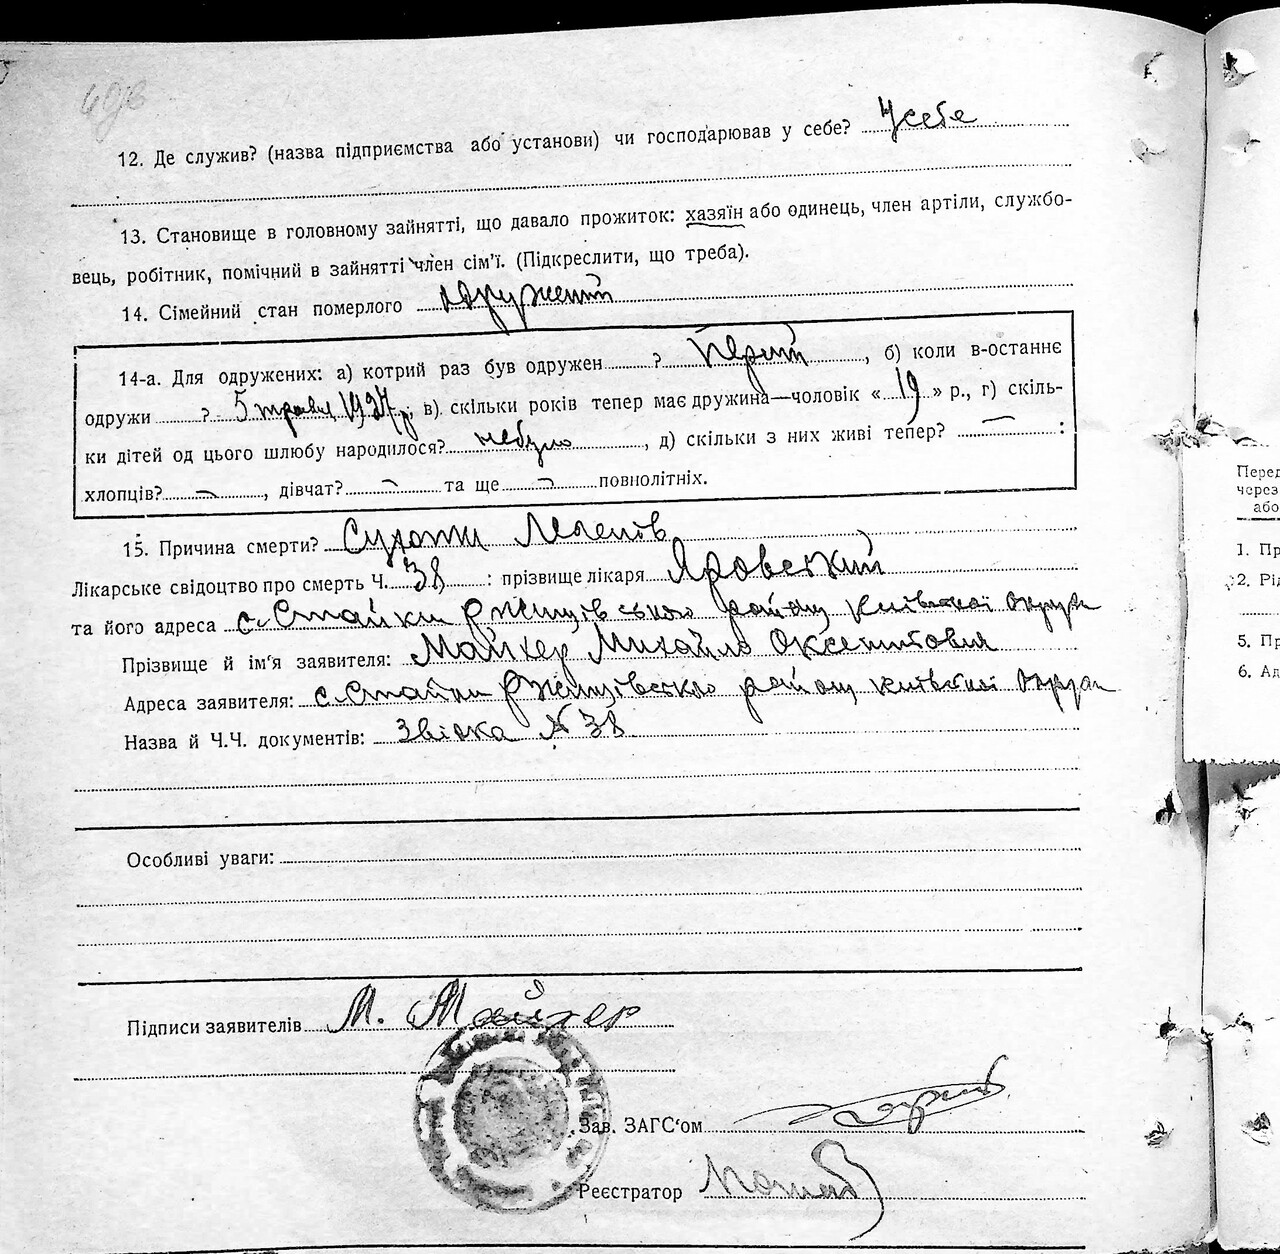 12. Де служив? (назва підприємства або установи) чи господарював у себе? У себе
13. Становище в головному зайнятті, що давало прожиток: хазяїн або одинець, член артіли, службо-
вець, робітник, помічний в зайнятті член сім'ї. (Підкреслити, що треба).
14. Сімейний стан померлого одружений
14-а. Для одружених: а) котрий раз був одружен ? Перший, б) коли в-останнє
одружи ? 5 травн 1927 р, в) скільки років тепер має дружина—чоловік « 19 » р., г) скіль-
ки дітей од цього шлюбу народилося? небуло, д) скільки з них живі тепер? — :
хлопців? —, дівчат? — та ще — повнолітніх.
15. Причина смерти? Сухоти Легенів
Лікарське свідоцтво про смерть Ч. 38 : прізвище лікаря Яровський
та його адреса с. Стайки Ржищівського району Київської округи
Прізвище й ім'я заявителя: Майхер Михайло Оксентович
Адреса заявителя: с. Стайки Ржищівського району Київської округи
Назва й Ч.Ч. документів: Звістка N 38
Особливі уваги:
Підписи заявителів М. Майхер
Зав. ЗАГС'ом
Реєстратор
Перед
через
або
1. Пр
2. Рід
5. Пр
6. Ад